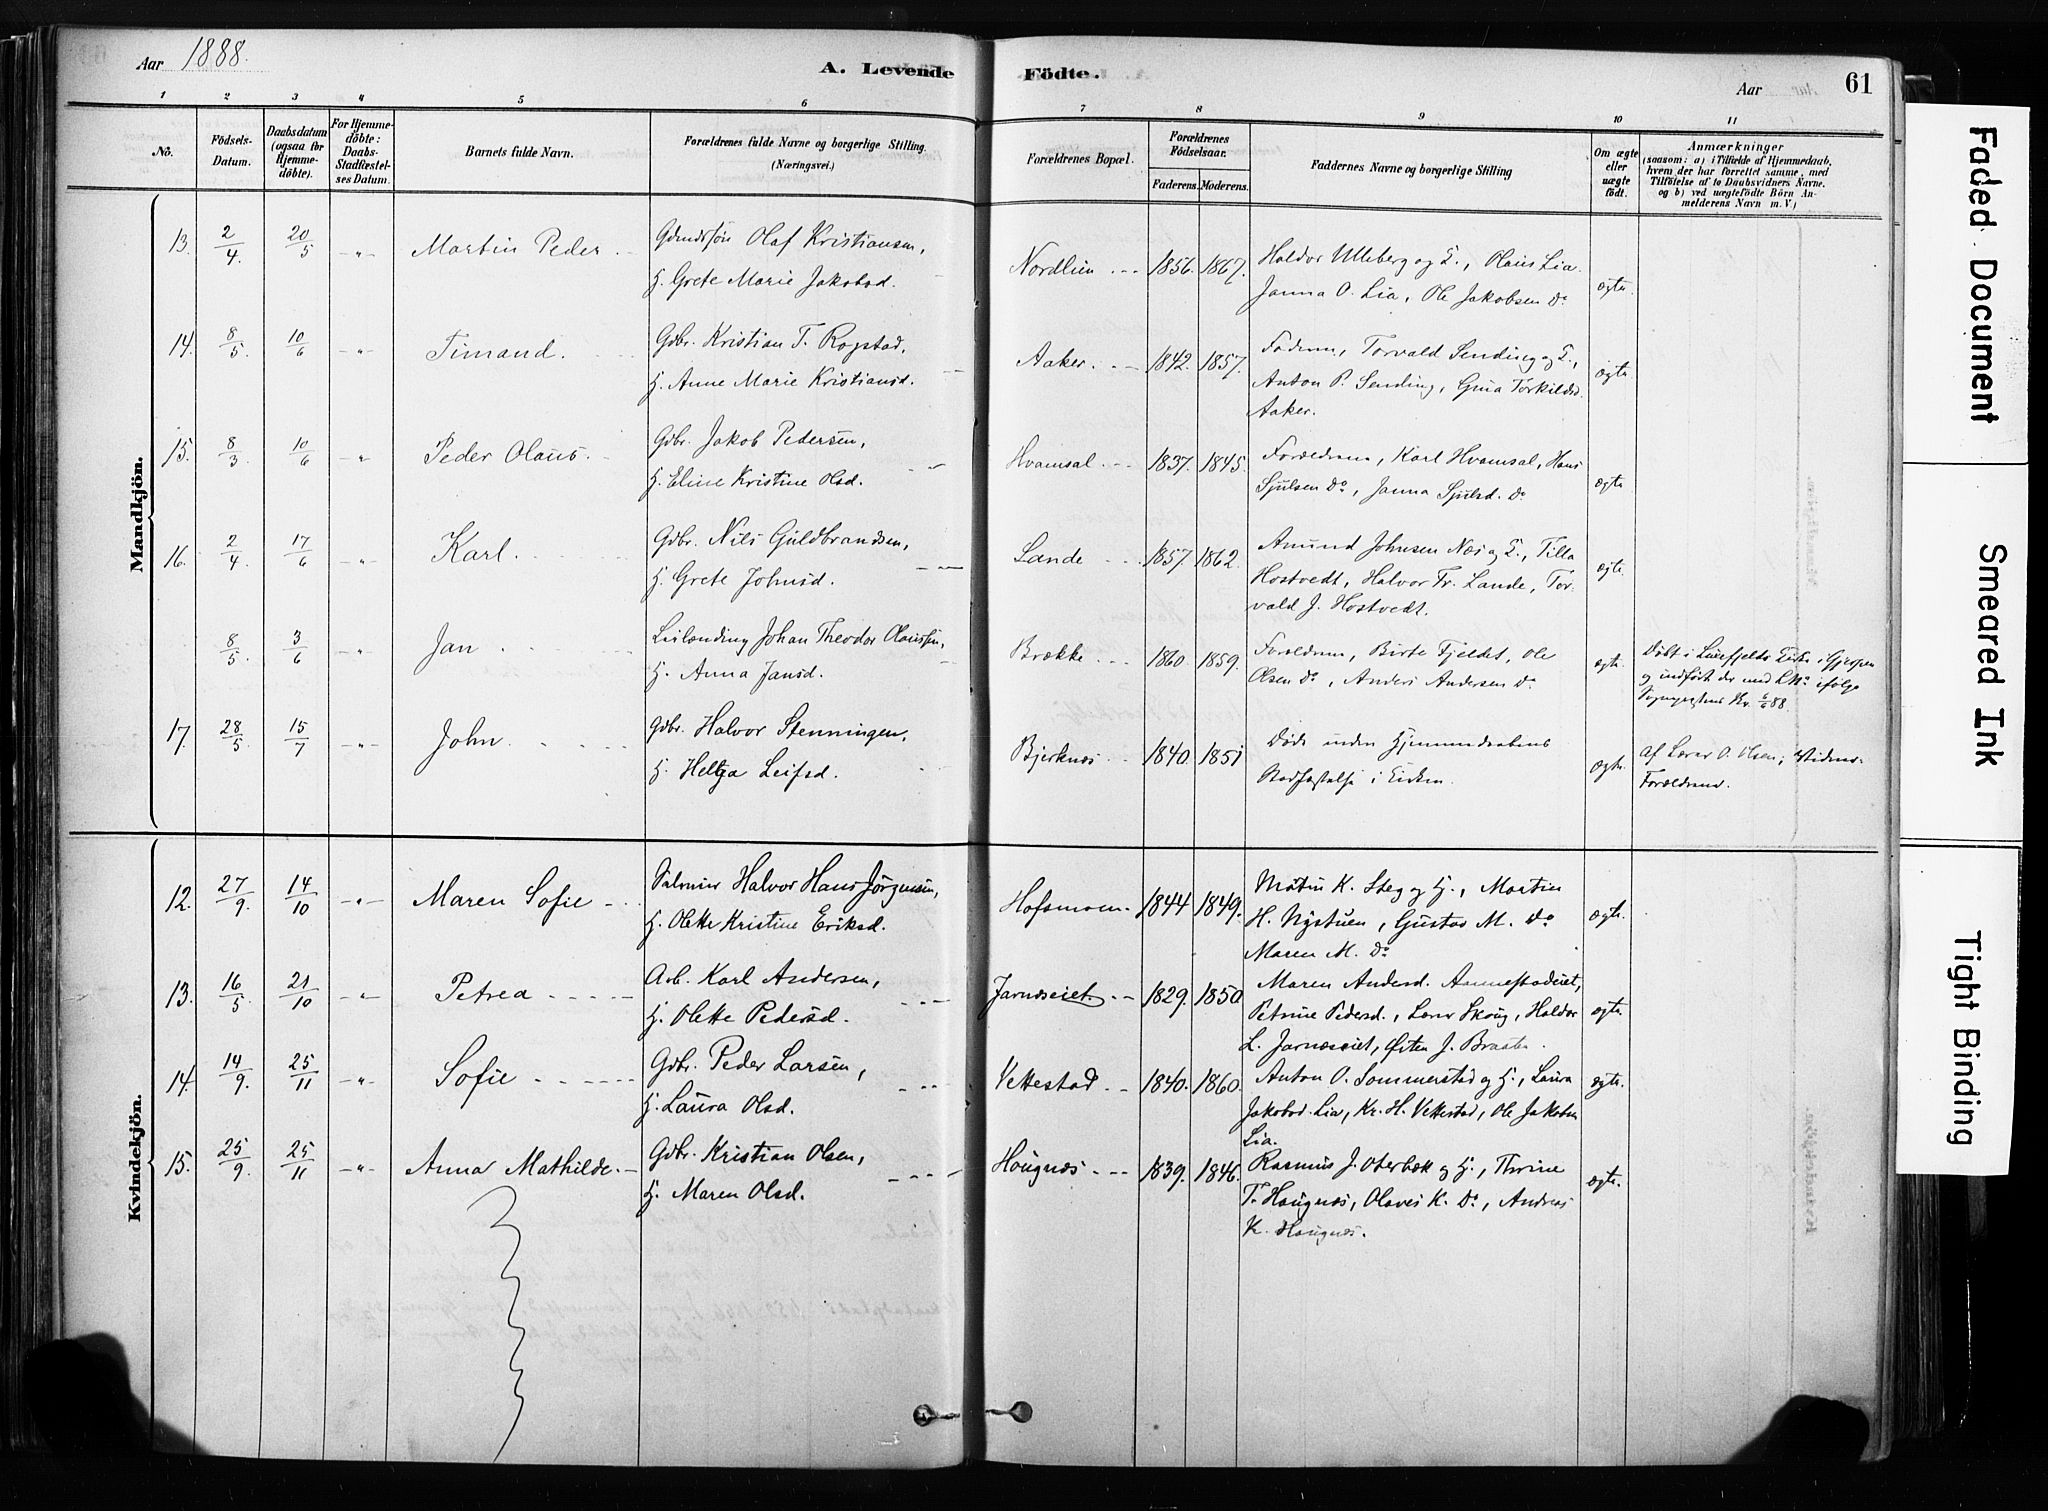 Aar 1888.
A. Levende Födte.
Aar
61
1 2 3 4 5 6 7 8 9 10 11
No.
Födsels-Datum.
Daabsdatum (ogsaa for Hjemme-döbte).
For Hjemme-döbte: Daabs-Stadfæstel-ses Datum.
Barnets fulde Navn.
Forældrenes fulde Navne og borgerlige Stilling. (Næringsvei.)
Forældrenes Bopæl.
Forældrenes Födselsaar.
Faderens. Moderens.
Faddernes Navne og borgerlige Stilling
Om ægte eller uægte födt.
Anmærkninger
(saasom: a) i Tilfælde af Hjemmedaab,
hvem der har forrettet samme, med
Tilföielse af to Daabsvidners Navne.
og b) ved uægtefödte Börn An-
melderens Navn m. V.)
Mandkjön.
13. 2/4 20/5 -"- Martin Peder Olaf Kristiansen,
h. Grete Marie Jakobsd.
Nordlien 1856. 1867. Haldor Ulleberg og h., Olaus Lia
Janna O. Lia, Ole Jakobsen Do ægte.
14. 8/5 10/6 -"- Timand. Gdbr. Kristian T. Rogstad,
h. Anne Marie Kristiansd.
Aaker. 1842. 1857. Torvald Sending og h.,
Anton P. Sending, Gina Torkildsd.
Aaker. ægte
15. 8/3 10/6 -"- Peder Olaus. Gdbr. Jakob Pedersen,
h. Eline Kristine Olsd.
Hvamsal 1837. 1845. Forældrene, Karl Hvamsal, Hans
Sjulsen Do, Janna Sjulsd. Do ægte
16. 2/4 17/6 -"- Karl. Gdbr. Nils Guldbrandsen,
h. Grete Johnsd.
Lande 1857. 1862. Amund Johnsen Næs og h., Tilla
Hostvedt, Halvor Tr. Lande, Tor-
vald J. Hostvedt. ægte.
8/5 3/6 -"- Jan Leilending Johan Theodor Olaussen,
h. Anna Jansd.
Brække 1860. 1859. Forældrene, Birte Fjeldet, Ole
Olsen Do, Anders Andersen Do ægte.
Döbt i Luksefjelds Kirke i Gjerpen
og indfört der med L No ifölge
88.
17. 28/5 15/7 -"- John. Gdbr. Halvor Stenningen,
h. Helga Leifsd.
Bjerknes 1840. 1851 Döde inden Hjemmedaabens
Stadfæstelse i Kirken. ægte
Af Lærer O. Olsen, Vidner
Forældrene.
Kvindekjön.
12. 27/9 14/10 -"- Maren Sofie Halvor Hans Jørgensen,
h. Olette Kristine Eriksd.
Hofsmoen 1844 1849. K. Steg og h., Martin
H. Nystuen, Gustav M. Do
Maren M. Do ægte.
13. 16/5 21/10 -"- Petrea Arb. Karl Andersen,
h. Olette Pedersd.
Jarnæseiet. 1829. 1850 Maren Andersd. Aannestadeiet,
Petrine Pedersd., Lærer Skoug, Haldor
L. Jarnæseiet, Østen J. Braaten. ægte.
14. 14/9 25/11 -"- Sofie Gdbr. Peder Larsen,
h. Laura Olsd.
Vettestad 1840. 1860. Anton O. Sommerstad og h., Laura
Jakobsd. Lia, Kr. H. Vettestad, Ole Jakobsen
Lia. ægte.
15. 25/9 25/11 -"- Anna Mathilde. Gdbr. Kristian Olsen,
h. Maren Olsd.
Hougnæs 1839. 1846. Rasmus J. Oterbæk og h., Thrine
T. Hougnæs, Olaves K. Do, Andreas
K. Hougnæs. ægte.
Faded Document
Smeared Ink
Tight Binding